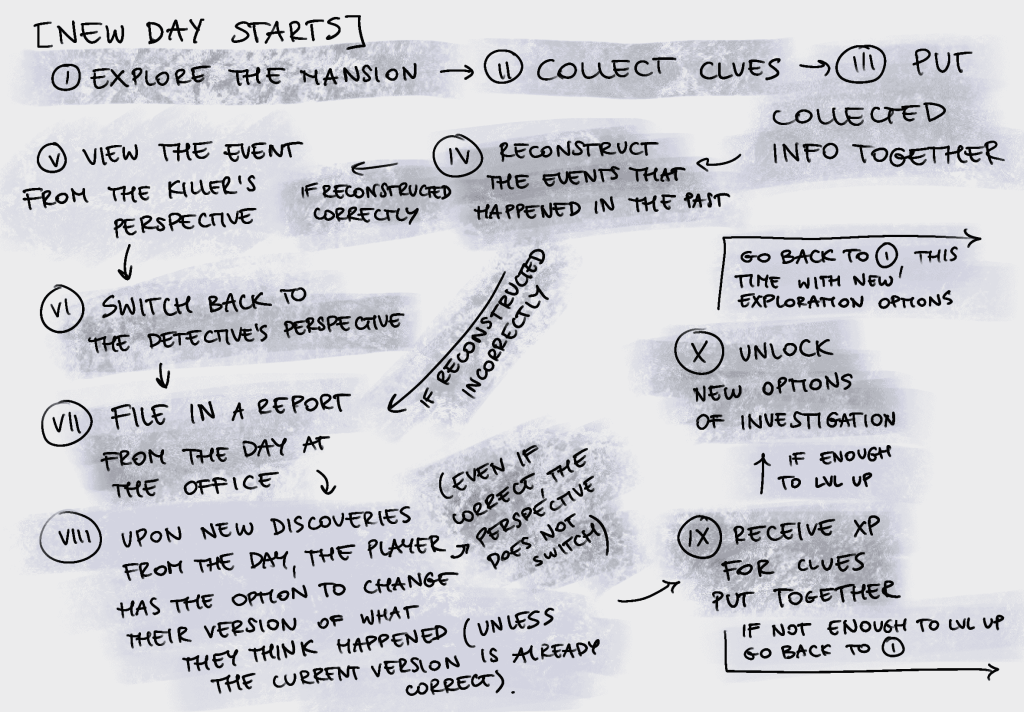 [NEW DAY STARTS]
I EXPLORE THE MANSION → II COLLECT CLUES → III PUT
COLLECTED
INFO TOGETHER
IV RECONSTRUCT
THE EVENTS THAT
HAPPENED IN THE PAST
IF RECONSTRUCTED
CORRECTLY
V VIEW THE EVENT
FROM THE KILLER'S
PERSPECTIVE
VI SWITCH BACK TO
THE DETECTIVE'S PERSPECTIVE
IF RECONSTRUCTED
INCORRECTLY
VII FILE IN A REPORT
FROM THE DAY AT
THE OFFICE
VIII UPON NEW DISCOVERIES
FROM THE DAY, THE PLAYER
HAS THE OPTION TO CHANGE
THEIR VERSION OF WHAT
THEY THINK HAPPENED (UNLESS
THE CURRENT VERSION IS ALREADY
CORRECT).
(EVEN IF
CORRECT, THE
PERSPECTIVE
DOES NOT
SWITCH)
IX RECEIVE XP
FOR CLUES
PUT TOGETHER
IF NOT ENOUGH TO LVL UP
GO BACK TO I
IF ENOUGH
TO LVL UP
X UNLOCK
NEW OPTIONS
OF INVESTIGATION
GO BACK TO I, THIS
TIME WITH NEW
EXPLORATION OPTIONS